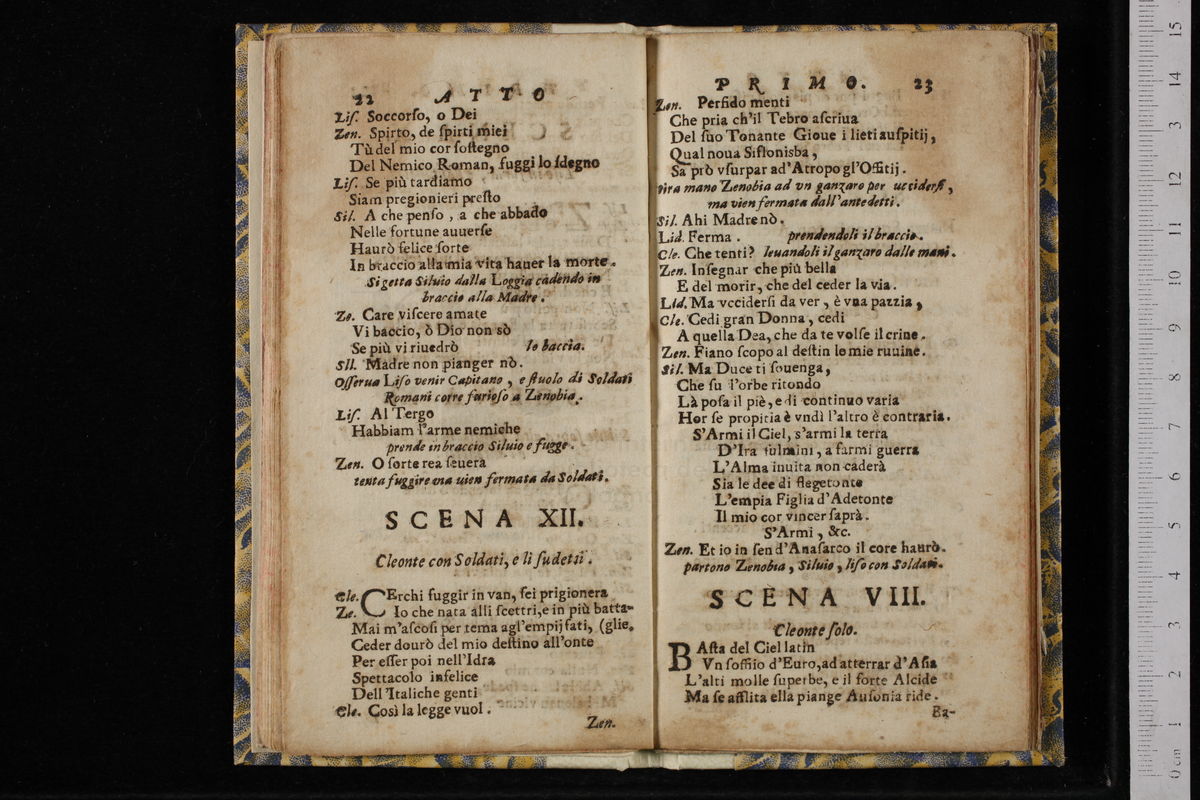 22 ATTO
Liſ. Soccorſo, o Dei
Zen. Spirto, de ſpirti miei
Tù del mio cor ſoſtegno
Del Nemico Roman, fuggi lo ſdegno
Liſ. Se più tardiamo
Siam pregionieri preſto
Sil. A che penſo, a che abbado
Nelle fortune auuerſe
Haurò felice ſorte
In braccio alla mia vita hauer la morte.
Si getta Siluio dalla Loggia cadendo in
braccio alla Madre.
Ze. Care viſcere amate
Vi baccio, ò Dio non sò
Se più vi riuedrò lo baccia.
Sil. Madre non pianger nò.
Oſſerua Liſo venir Capitano, e ſtuolo di Soldati
Romani corre furioſo a Zenobia.
Liſ. Al Tergo
Habbiam l'arme nemiche
prende in braccio Siluio e fugge.
Zen. O ſorte rea ſeuera
tenta fuggire ma uien fermata da Soldati.
SCENA XII.
Cleonte con Soldati, e li ſudetti.
Cle. CErchi fuggir in van, ſei prigionera
Ze. Io che nata alli ſcettri, e in più batta-
Mai m'aſcoſi per tema agl'empij fati, (glie.
Ceder dourò del mio deſtino all'onte
Per eſſer poi nell'Idra
Spettacolo infelice
Dell'Italiche genti
Cle. Così la legge vuol.
Zen.
PRIMO. 23
Zen. Perfido menti
Che pria ch'il Tebro aſcriua
Del ſuo Tonante Gioue i lieti auſpitij,
Qual noua Siffonisba,
Sa prò vſurpar ad'Atropo gl'Offitij.
tira mano Zenobia ad vn ganzaro per ucciderſi,
ma vien fermata dall'antedetti.
Sil. Ahi Madre nò.
Lid. Ferma. prendendoli il braccio.
Cle. Che tenti? leuandoli il ganzaro dalle mani.
Zen. Inſegnar che più bella
E del morir, che del ceder la via.
Lid. Ma vcciderſi da ver, è vna pazzia,
Cle. Cedi gran Donna, cedi
A quella Dea, che da te volſe il crine.
Zen. Fiano ſcopo al deſtin le mie ruuine.
Sil. Ma Duce ti ſouenga,
Che ſu l'orbe ritondo
Là poſa il piè, e di continuo varia
Hor ſe propitia è vndì l'altro è contraria.
S'Armi il Ciel, s'armi la terra
D'Ira fulmini, a farmi guerra
L'Alma inuita non caderà
Sia le dee di flegetonte
L'empia Figlia d'Adetonte
Il mio cor vincer ſaprà.
S'Armi, &c.
Zen. Et io in ſen d'Anaſarco il core haurò.
partono Zenobia, Siluio, liſo con Soldati.
SCENA VIII.
Cleonte ſolo.
BAſta del Ciel latin
Vn ſoffiio d'Euro, ad atterrar d'Aſia
L'alti molle ſuperbe, e il forte Alcide
Ma ſe afflita ella piange Auſonia ride.
Ba-